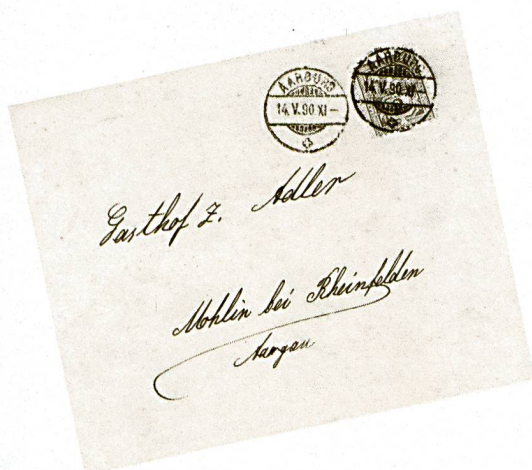 AARBURG
14.V.90.XI-
AARBURG
14.V.90.XI-
Gasthof z. Adler
Mohlin bei Rheinfelden
Aargau